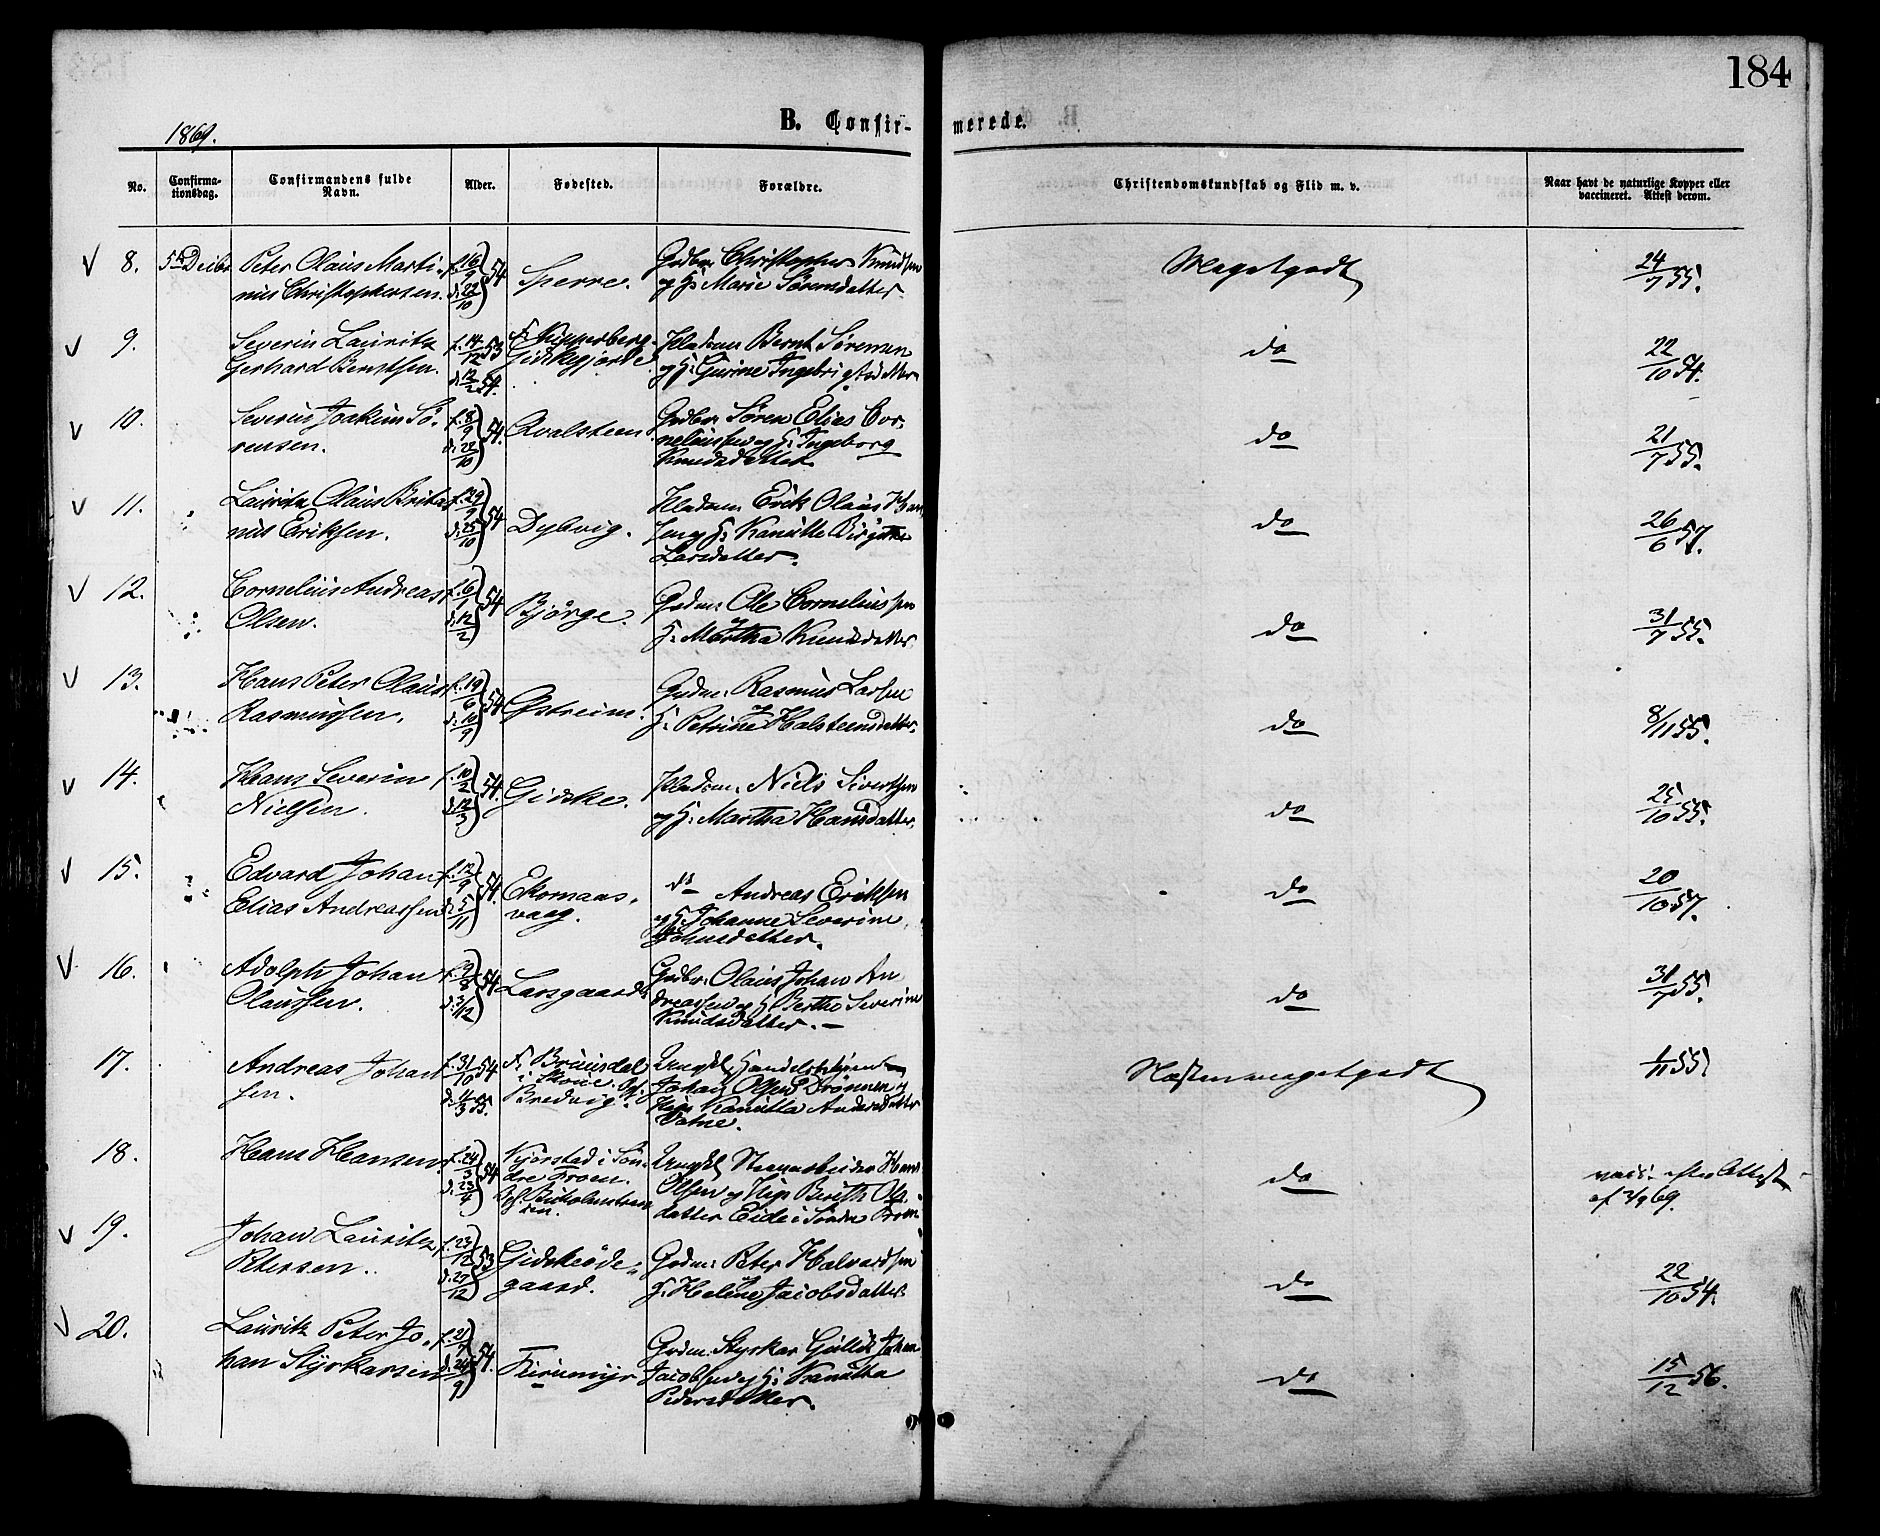 184
B. Confir-
merede.
1869.
No.
Confirma-
tionsdag.
Confirmandens fulde
Navn.
Alder.
Fødested.
Forældre.
Christendomskundskab og Flid m. v.
Naar havt de naturlige Kopper eller
vaccineret. Attest derom.
8.
Peter Olaus Marti-
nus Christophersen.
f. 16/9
d. 22/10
54
Sperre.
Grdbr. Christopher Knudsen
og H: Marie Sørensdatter
Megetgodt
24/7 55.
9.
Severin Lauritz
Gerhard Berntsen.
f. 14/12 53
d. 12/2 54.
Gidskegjerde
Bernt Sørensen
og H: Gurine Ingebrigtsdatter
do
22/10 54.
10.
Severin Joakim Sø-
rensen.
f. 8/9
d. 22/10
54.
Qvalsteen
Grdbr. Søren Elias Cor-
neliussen og H: Ingeborg
Knudsdatter
do
21/7 55.
11.
Lauritz Olaus
nus Eriksen.
f. 29/9
d. 25/10
54
Dybvig.
Erik Olaus Han-
sen og H: Kanutte
Larsdatter.
do
26/6 57.
12.
Cornelius Andreas
Olsen.
f. 6/1
d. 12/2
54
Bjørge.
Grdm: Ole Corneliussen
H: Martha Knudsdatter
do
31/7 55.
13.
Hans Peter Olaus
Rasmussen.
f. 19/6
d. 10/9
54
Østreim.
Grdm: Rasmus Larsen
H: Petrine Halsteensdatter
do
8/11 55.
14.
Hans Severin
Nielsen.
f. 10/2
d. 12/3
54.
Gidske.
Niels Sivertsen
og H: Martha Hansdatter.
do
25/10 55.
15.
Edvard Johan
Elias Andreassen
f. 12/9
d. 5/11
54.
vaag.
do Andreas Eriksen
og H: Johanne Severine
Johnsdatter.
do
20/10 57.
16.
Adolph Johan
Olaussen.
54
Larsgaard
Grdbr: Olaus Johan An-
dreassen og H Berthe Severine
Knudsdatter.
do
31/7 55.
17.
Andreas Johan
sen.
f. 31/10 54
55.
Bredvig.
Ungkl
Johan Olsen
Kanutta Andersdatter
Næstenmegetgodt
55
18.
Hans Hansen.
f. 24/3
d. 23/4
54
Kjørstad i Søn-
dre Fron.
Ungkl Hans
Olsen og Berith Ols-
datter Eide i Søndre Fron
do
vacc. efter Attest
af 69.
19.
Johan Lauritz
Petersen.
f. 23/12
d. 27/12
53
Gidskeøde-
gaard.
Grdm: Peter Halvardsen
H. Heline Jacobsdatter
do
22/10 54.
20.
Lauritz Peter Jo-
han Styrkarsen
54.
Grdm: Styrkar Gullik Johan
Jacobsen og H: Kanutta
Pedersdatter.
do
15/12 56.